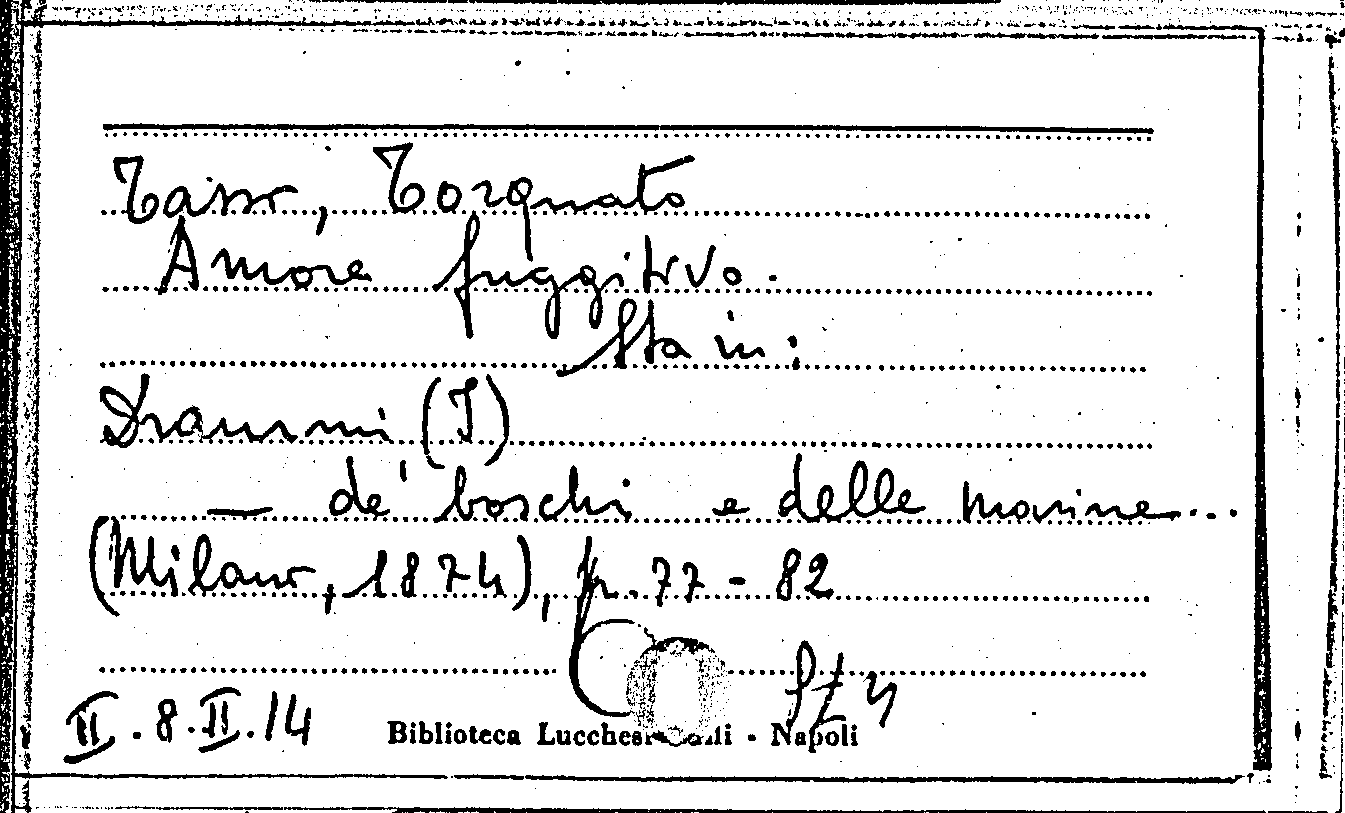 Tasso, Torquato
Amore fuggitivo.
Sta in:
Drammi (I)
— de' boschi e delle marine...
(Milano, 1874), p. 77-82
II.8.II.14
Biblioteca Lucchesi - Napoli